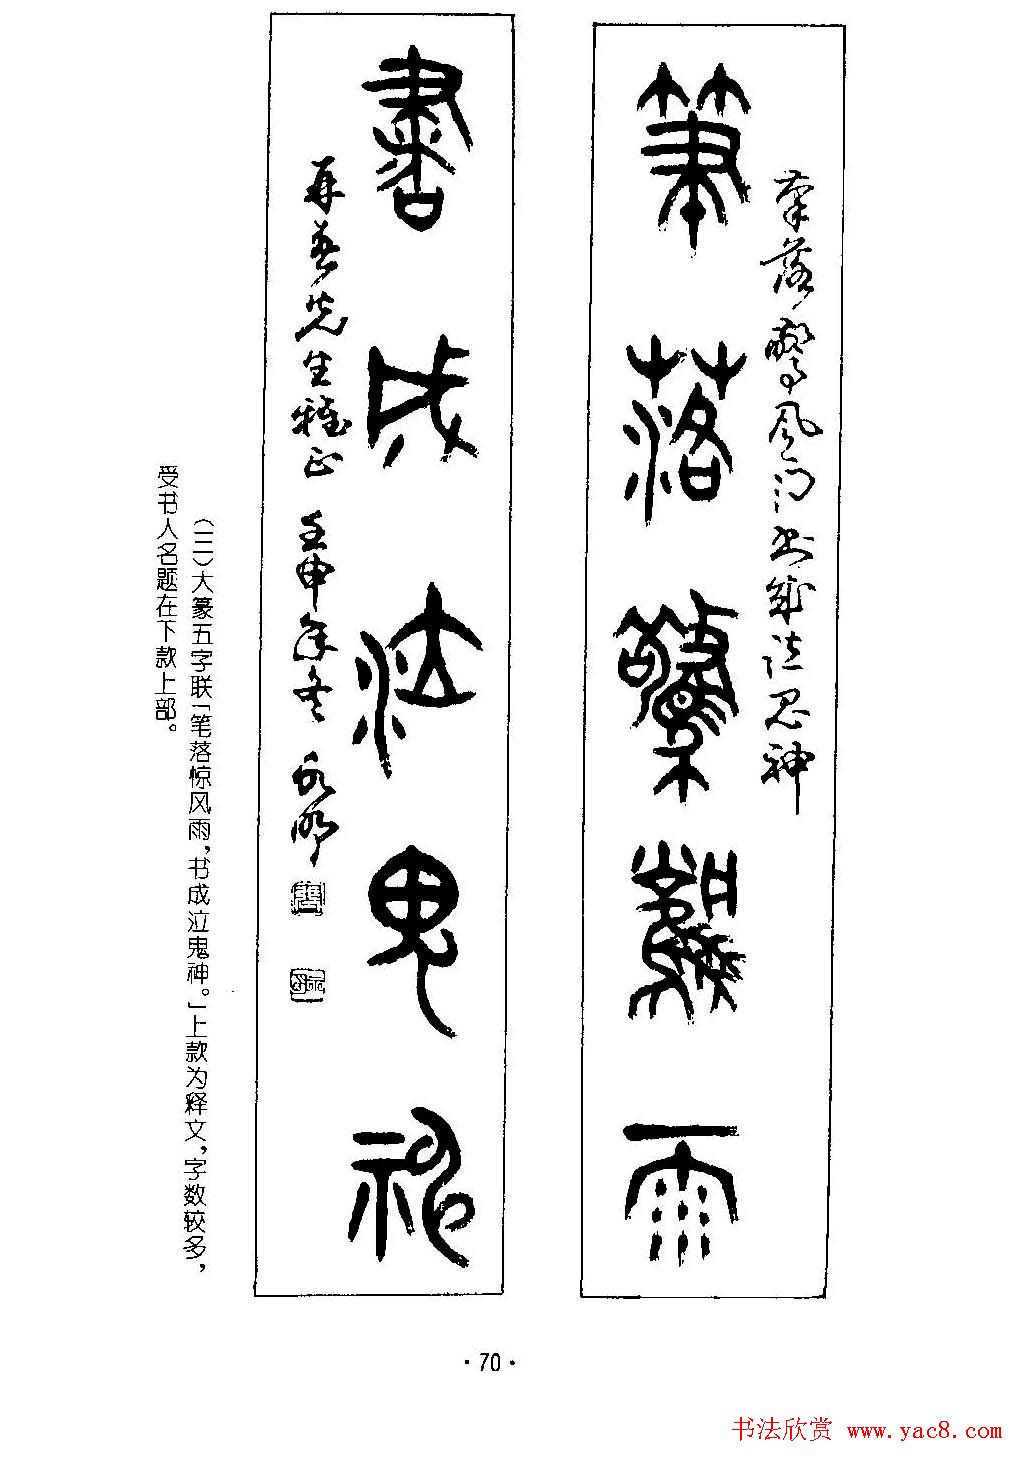 筆落驚風雨
筆落驚風雨書成泣鬼神
書成泣鬼神
先生雅正 壬申年冬
(三)大篆五字联「笔落惊风雨，书成泣鬼神。」上款为释文，字数较多，
受书人名题在下款上部。
·70·
书法欣赏 www.yac8.com